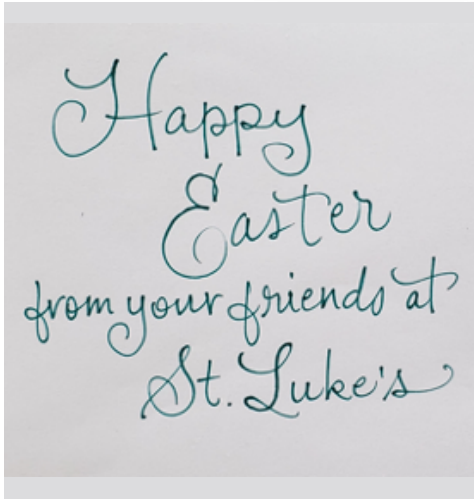 Happy
Easter
from your friends at
St. Luke's